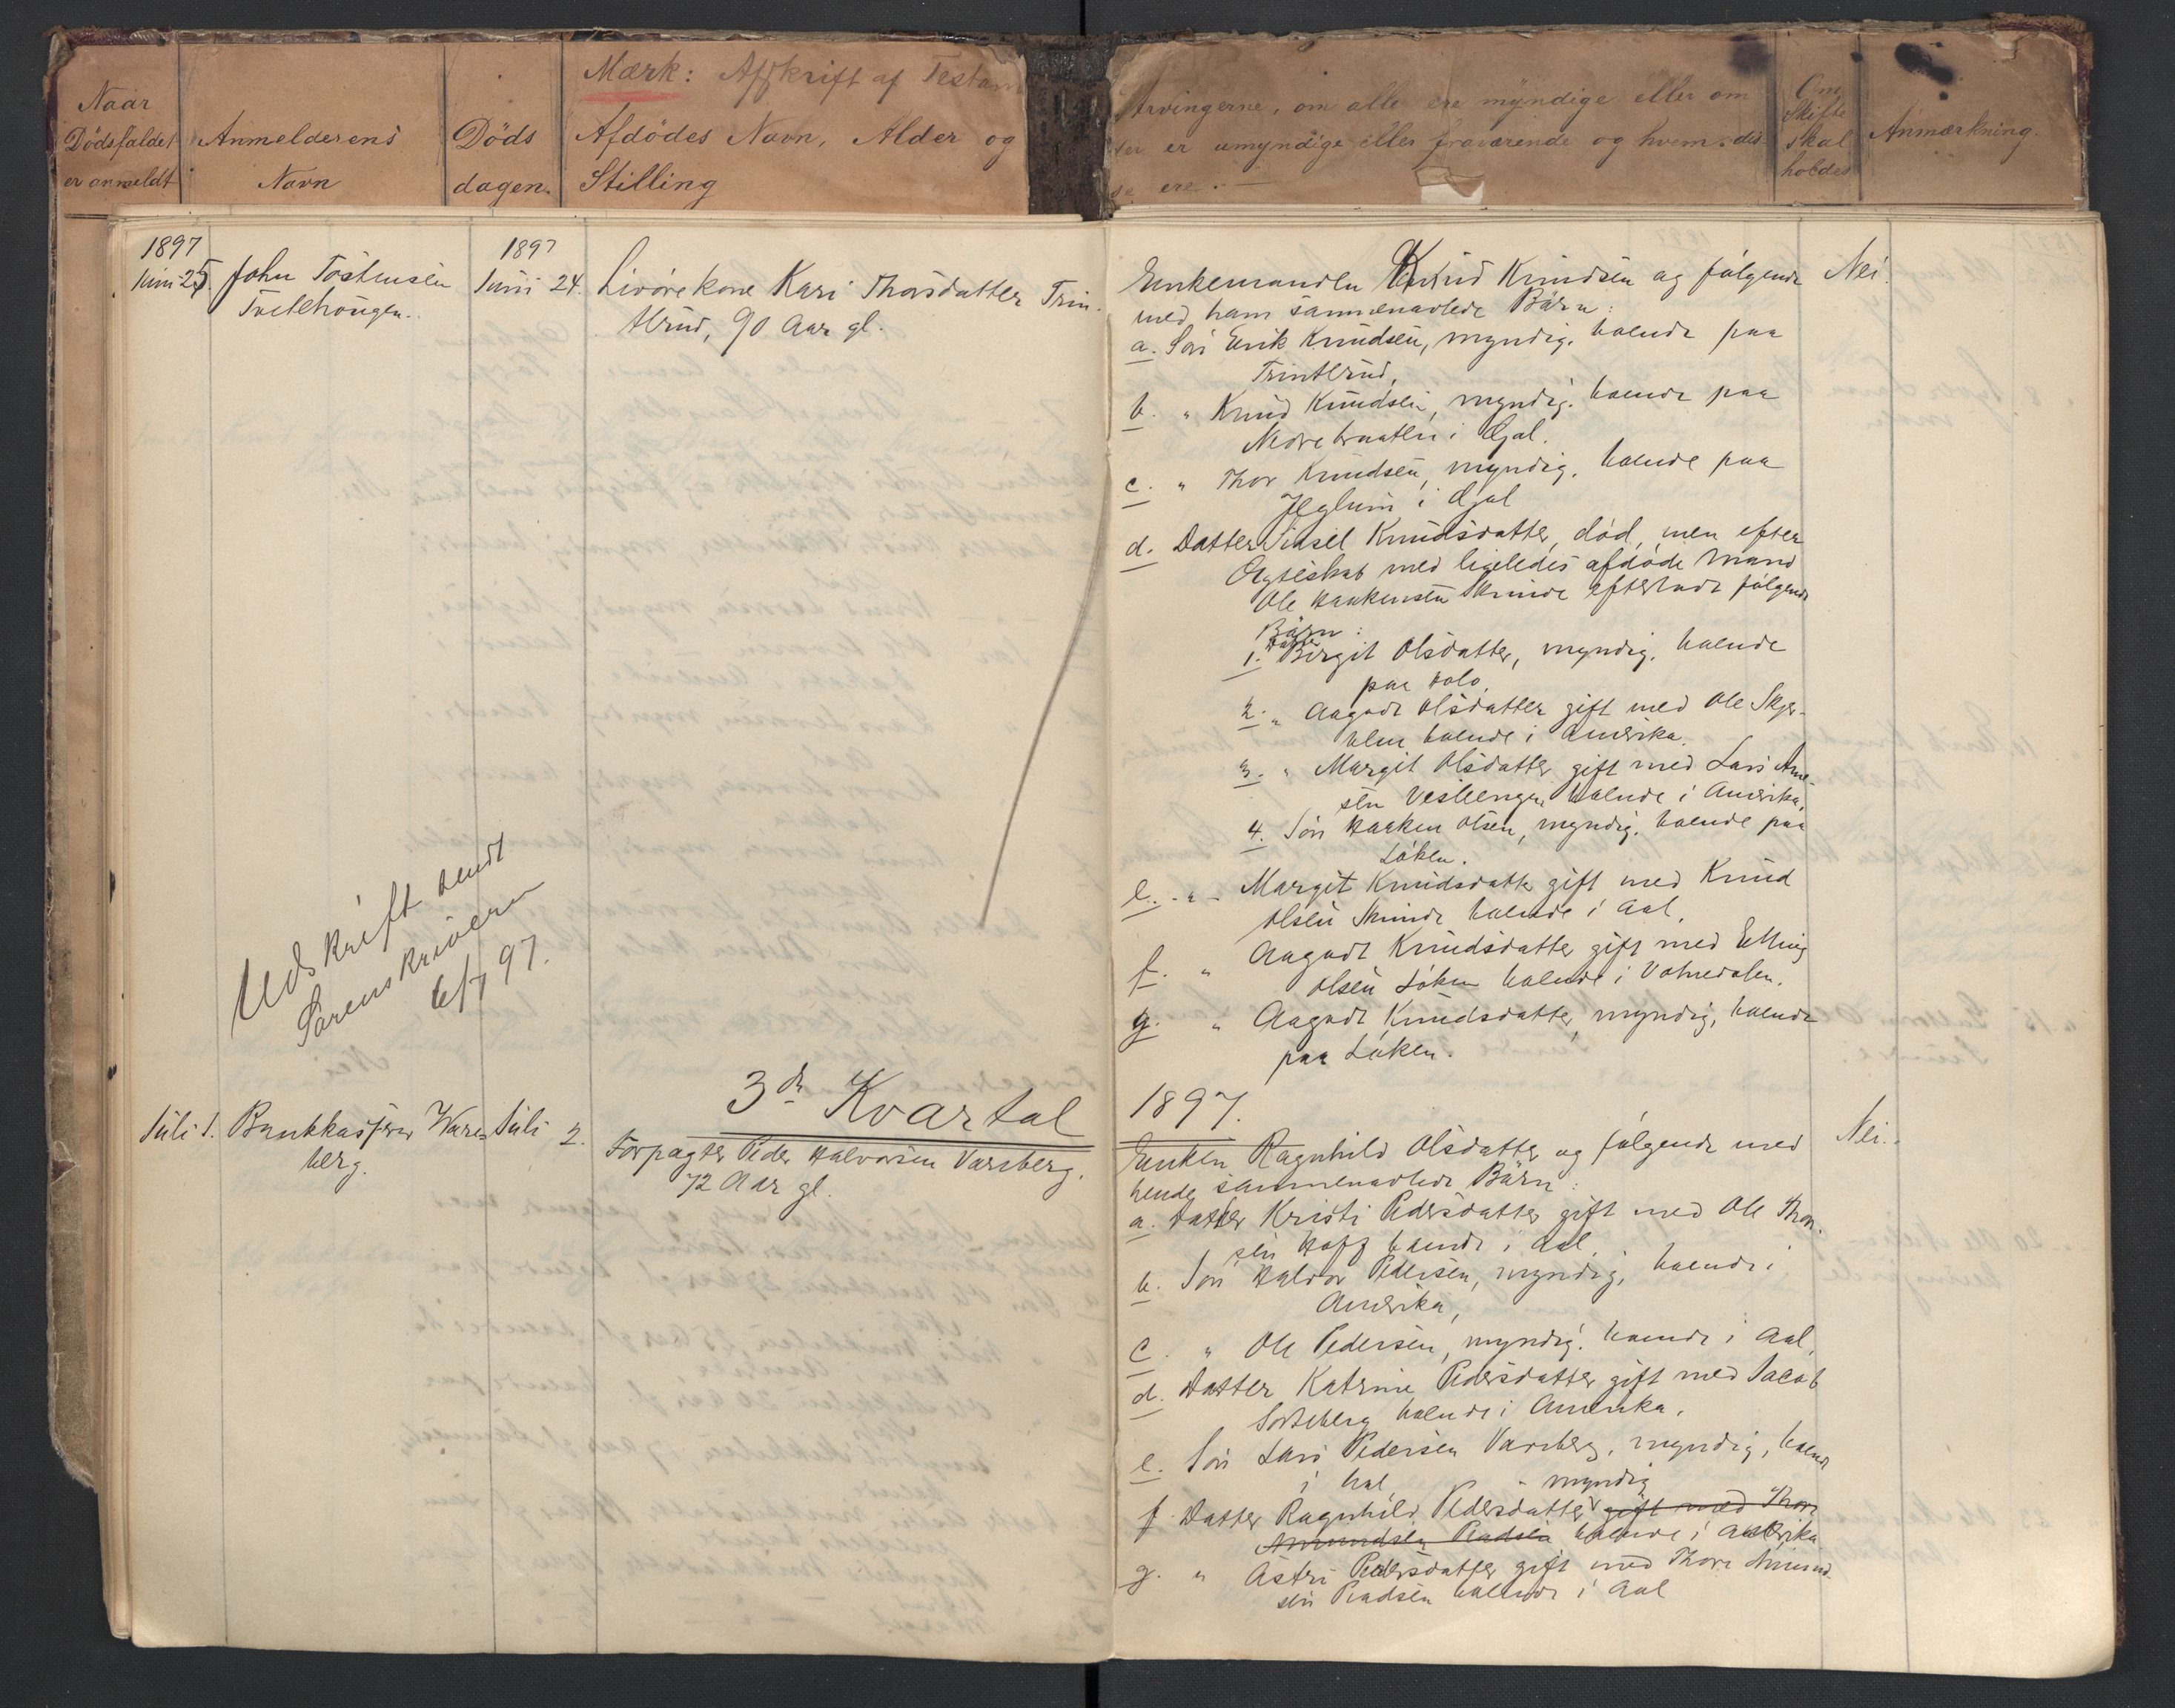 Naar
Dödsfaldet
er anmeldt
Anmelderens
Navn
Döds
dagen.
Mærk: Afskrift af Testam
Afdödes Navn, Alder og
Stilling
Arvingerne, om alle ere myndige eller om
er umyndige eller fraværende og hvem dis-
se ere. —
Om
Skifte
skal
holdes
Anmærkning.
1897
Juni 25.
John Tostensen
1897
Juni 24.
Livörekone Kari Thorsdatter Trin-
tlrud, 90 Aar gl.
Udskrift sendt
Sorenskriveren
6/7 97.
Enkemanden Knud Knudsen og følgende
med ham sammenavlede Börn:
a. Sön Erik Knudsen, myndig, boende paa
Trintlrud,
b. " Knud Knudsen, myndig, boende paa
Nedrebraaten i Gol.
c. " Thor Knudsen, myndig, boende paa
i Gol
d. Datter Sidsel Knudsdatter, död, men efter
Ægteskab med ligeledes afdöde Mand
Ole Haakensen Skrinde efterladt følgende
Börn:
1. Datter Birgit Olsdatter, myndig, boende
paa Holo.
2. " Aagodt Olsdatter gift med Ole Skjer-
boende i Amerika.
3. " Margit Olsdatter gift med Lars Arne-
sen Vesleengen boende i Amerika.
4. Sön Haaken Olsen, myndig, boende paa
Löken.
e. - " - Margit Knudsdatter gift med Knud
Olsen Skrinde boende i Aal.
f. " Aagodt Knudsdatter gift med Elling
Olsen Löken boende i Votnedalen.
g. " Aagodt Knudsdatter, myndig, boende
paa Löken.
Nei.
3de Kvartal
1897.
Juli 1.
Bankkasserer Wars-
berg.
Juli 2.
Forpagter Peder Halvorsen Varsberg,
72 Aar gl.
Enken Ragnhild Olsdatter og følgende med
hende sammenavlede Börn:
a. Datter Kristi Pedersdatter gift med Ole Thor-
sen Hoff boende i Aal.
b. Sön Halvor Pedersen, myndig, boende i
Amerika,
c. " Ole Pedersen, myndig, boende i Aal,
d. Datter Katrine Pedersdatter gift med Jacob
Sorteberg boende i Amerika.
e. Sön Lars Pedersen Varsberg, myndig, boende
i Aal,
myndig
f. Datter Ragnhild Pedersdatter gift med Thore
Amundsen boende i Amerika
g. " Astri Pedersdatter gift med Thore Amund-
sen boende i Aal
Nei.